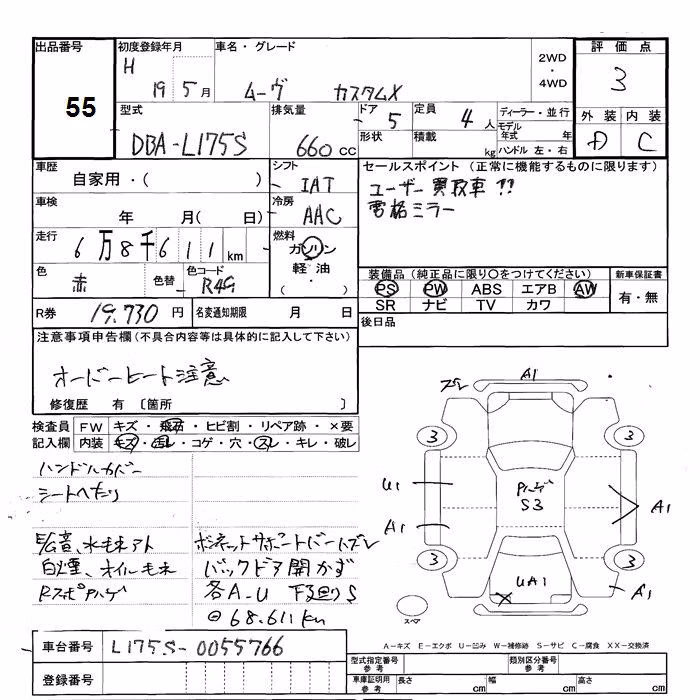 出品番号 初度登録年月 車名・グレード 2WD・4WD 評価点
55 H 19 5月 ムーヴ カスタムX 3
型式 排気量 ドア 5 定員 4人 ディーラー・並行 外装 内装
DBA-L175S 660cc 形状 積載 kg モデル年式 年 D C
ハンドル 左・右
車歴 自家用・( ) シフト IAT セールスポイント (正常に機能するものに限ります)
車検 年 月( 日) 冷房 AAC ユーザー買取車!!
電格ミラー
走行 6万8千611km 燃料 ガソリン
軽油
色 赤 色替 色コード R49 装備品(純正品に限り○をつけてください) 新車保証書
PS PW ABS エアB AW 有・無
SR ナビ TV カワ
R券 19,730円 名変通知期限 月 日 後日品
注意事項申告欄(不具合内容等は具体的に記入して下さい)
オーバーヒート注意
修復歴 有 〔箇所 〕
検査員 FW キズ・飛石・ヒビ割・リペア跡・×要
記入欄 内装 キズ・汚レ・コゲ・穴・スレ・キレ・破レ
ハンドルカバー
シートへたり
E/G音、水モレアト ボンネットサポートバーハズレ
白煙、オイルモレ バックドア開かず
各A-U 下廻りS
68.611km
ズレ A1
3 3
U1 S3 A1
A1
3 3
UA1 A1
×
スペア
A-キズ E-エクボ U-凹み W-補修跡 S-サビ C-腐食 XX-交換済
車台番号 L175S-0055766
登録番号
型式指定番号 参考 類別区分番号 参考
車庫証明用 参考 長さ cm 幅 cm 高さ cm